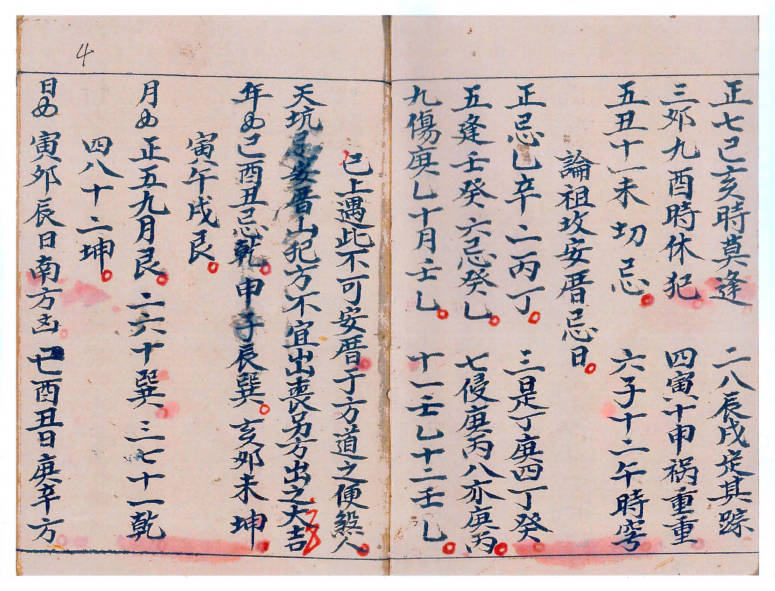 正七巳亥時莫逢　二八辰戌定其踪
三卯九酉時休犯　四寅十申祸重重
五丑十一未切忌　六子十二午時穹
論祖攻安厝忌日
正忌乙辛二丙丁　三是丁庚四丁癸
五逢壬癸六忌癸乙　七侵庚丙八亦庚丙
九傷庚乙十月壬乙　十一壬乙十二壬乙
4
已上遇此不可安厝于方道之便煞人
天坑忌安厝山犯方不宜出喪另方出之大吉
年如巳酉丑忌乾申子辰巽　亥卯未坤
寅午戌艮
月如正五九月艮二六十巽三七十一乾
四八十二坤
日如寅卯辰日南方凶巳酉丑日庚辛方